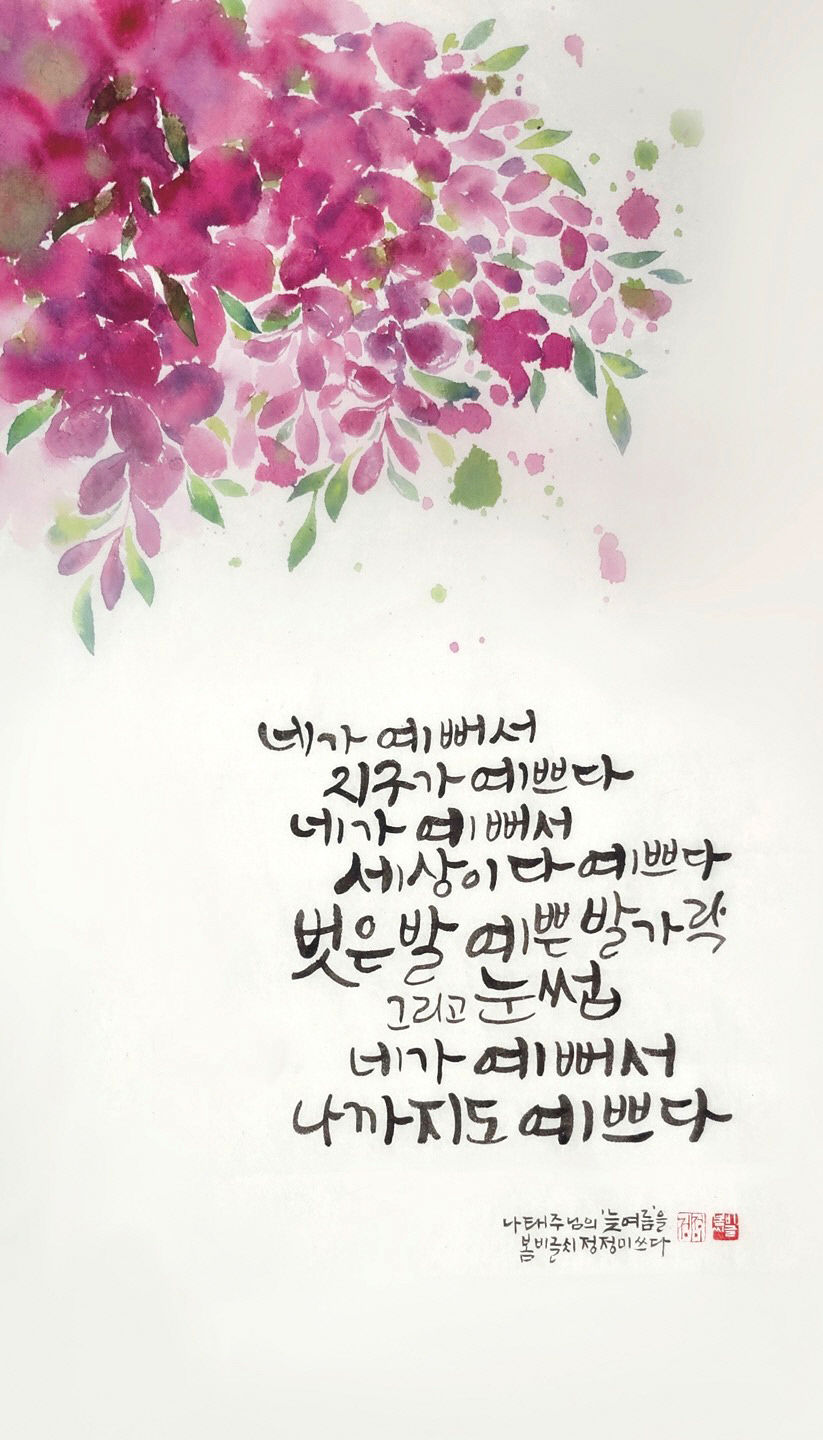 네가 예뻐서
지구가 예쁘다
네가 예뻐서
세상이 다 예쁘다
벗은 발 예쁜 발가락
그리고 눈썹
네가 예뻐서
나까지도 예쁘다
나태주님의 '늦여름'을
봄비글씨 정정미 쓰다